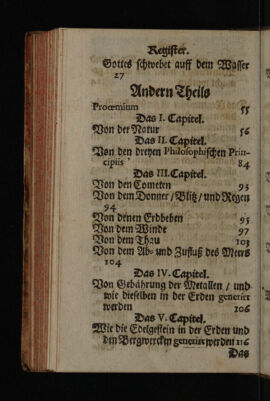 Register.
Gottes schwebet auff dem Wasser
27
Andern Theils
Proœmium 55
Das I. Capitel.
Von der Natur 56
Das II. Capitel.
Von den dreyen Philosophischen Prin-
cipiis 84
Das III. Capitel.
Von den Cometen 93
Von dem Donner / Blitz / und Regen
94
Von denen Erdbeben 95
Von dem Winde 97
Von dem Thau 103
Von dem Ab- und Zufluß des Meers
104
Das IV. Capitel.
Von Gebährung der Metallen / und
wie dieselben in der Erden generirt
werden 106
Das V. Capitel.
Wie die Edelgestein in der Erden und
den Bergwercken generirt werden 116
Das